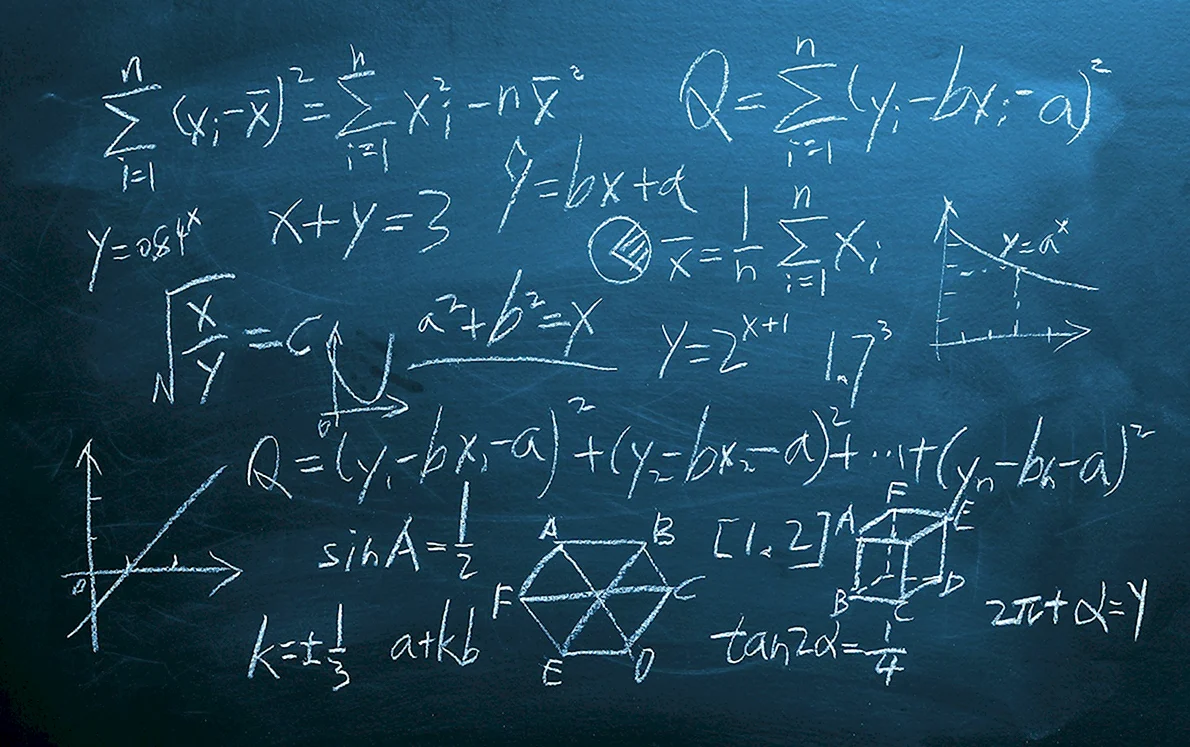 ∑ⁿᵢ₌₁ (xᵢ-x̄)² = ∑ⁿᵢ₌₁ xᵢ² - nx̄²
Q = ∑ⁿᵢ₌₁ (yᵢ-bxᵢ-a)²
ŷ = bx+a
y=0.84ˣ
x+y=3
x̄ = 1/n ∑ⁿᵢ₌₁ xᵢ
y=aˣ
√(x/y) = C
0
a²+b²=x
y=2ˣ⁺¹
1.7³
Q=(y₁-bx₁-a)²+(y₂-bx₂-a)²+…+(yₙ-bₙ-a)²
0
sinA=1/2
A B
F C
E D
[1,2]
F
A E
B C D
2π+α=y
k=±1/3
a+kb
tan2α=1/4